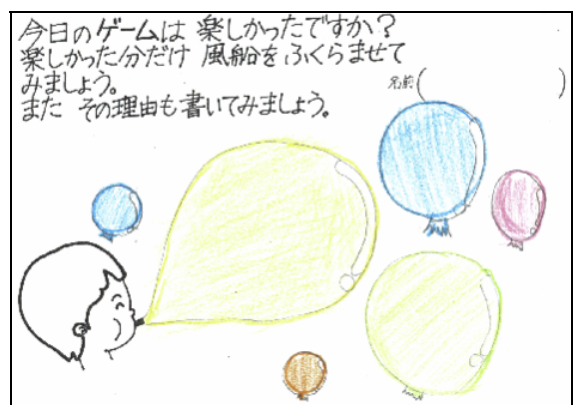 今日のゲームは 楽しかったですか？
楽しかった分だけ 風船をふくらませて
みましょう。
名前(　　　　　)
また その理由も書いてみましょう。